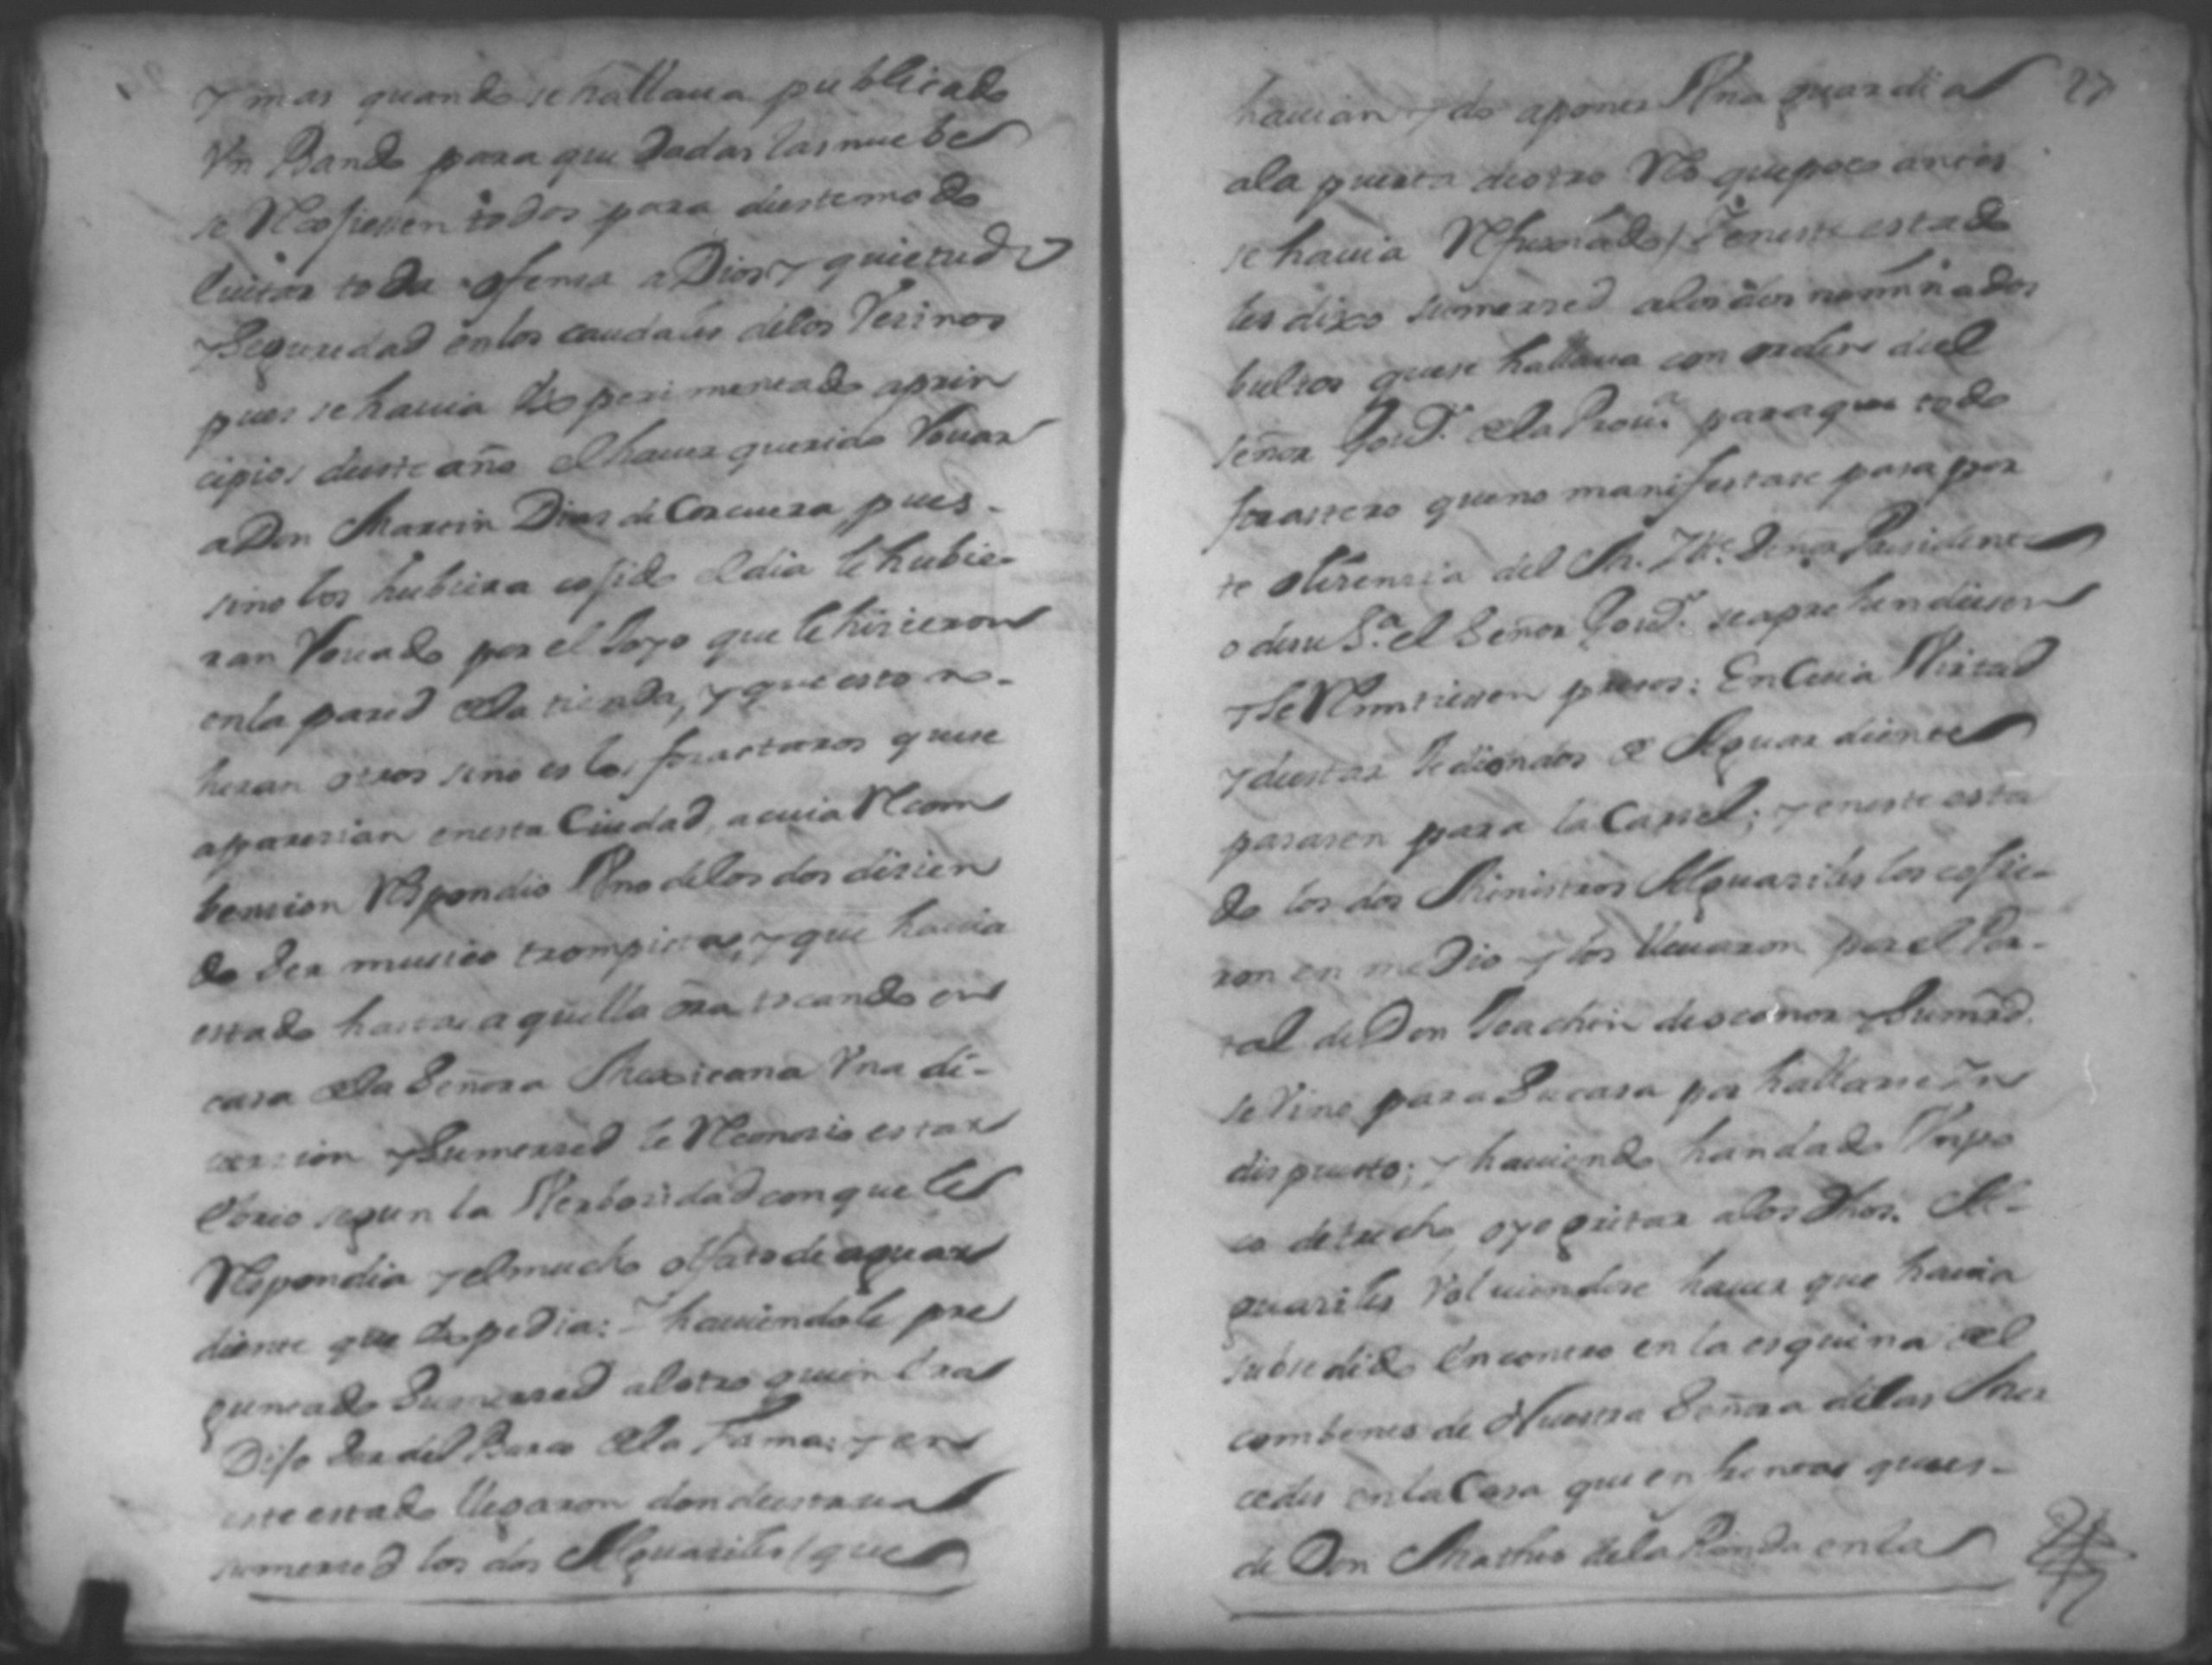 y mas quando se hallaua publicado
Vn Bando para que dadas las nuebe
se Recojiessen todos para deeste modo
Euitar toda ofensa a Dios y quietud
y Seguredad en los caudales de los Vesinos
pues se hauia Experimentado aprin
cipios deeste año el hauer querido Rouar
a Don Martin Dias de Corcuera pues-
sino los hubiera cojido el dia le hubie-
ran Rouado por el hoyo que le hisieron
en la pared de la tienda, y que esto no-
heran otros sino es los forasteros que se
aparesian en esta Ciudad, a cuia Recom
bension Respondio Vno de los dos disien
do Ser musico trompista, y que hauia
estado hasta aquella ora tocando en
casa de la Señora Mexicana Vna di-
uersion y Sumerced le Reconosio estar
Ebrio segun la Verbosidad con que le
Respondia y el mucho olfato de aguar
diente que Espedia: Y hauiendole pre
guntado Sumerced al otro quien Era
Dijo Ser del Barco de la Fama: y en
este estado llegaron donde estaua
sumerced los dos Alguasiles (que
hauian ydo aponer Vna guardia 27
ala puerta de otro Reo que poco antes
se hauia Refuxiado) Y en este estado
les dixo sumerced alos dos nominados
bultos que se hallaua con orden del
señor Gou.r de la Prou.a para que todo
forastero que no manifestase pasapor
te o lisensia del M. Ill.e Señor Presidente
o de su S.a el Señor Gou.r se aprehendiesen
y Se Remitiessen presos: En Cuia Virtud
y de estar hediondos de Aguardiente
pasasen para la Carsel; y en este esta
do los dos Ministros Alguasiles los cojie-
ron en medio y los lleuaron por el Por-
tal de Don Joachin de y Sumrd.
se Vino para Su casa por hallarse Yn
dispuesto; y hauiendo handado Vn po
co de trecho oyo gritar alos dhos. Al-
guasiles Voluiendose hauer que hauia
subsedido Encontro en la esquina del
combento de Nuestra Señora de las Mer
cedes en la Casa que en frente que es-
de Don Matheo de la Randa en la